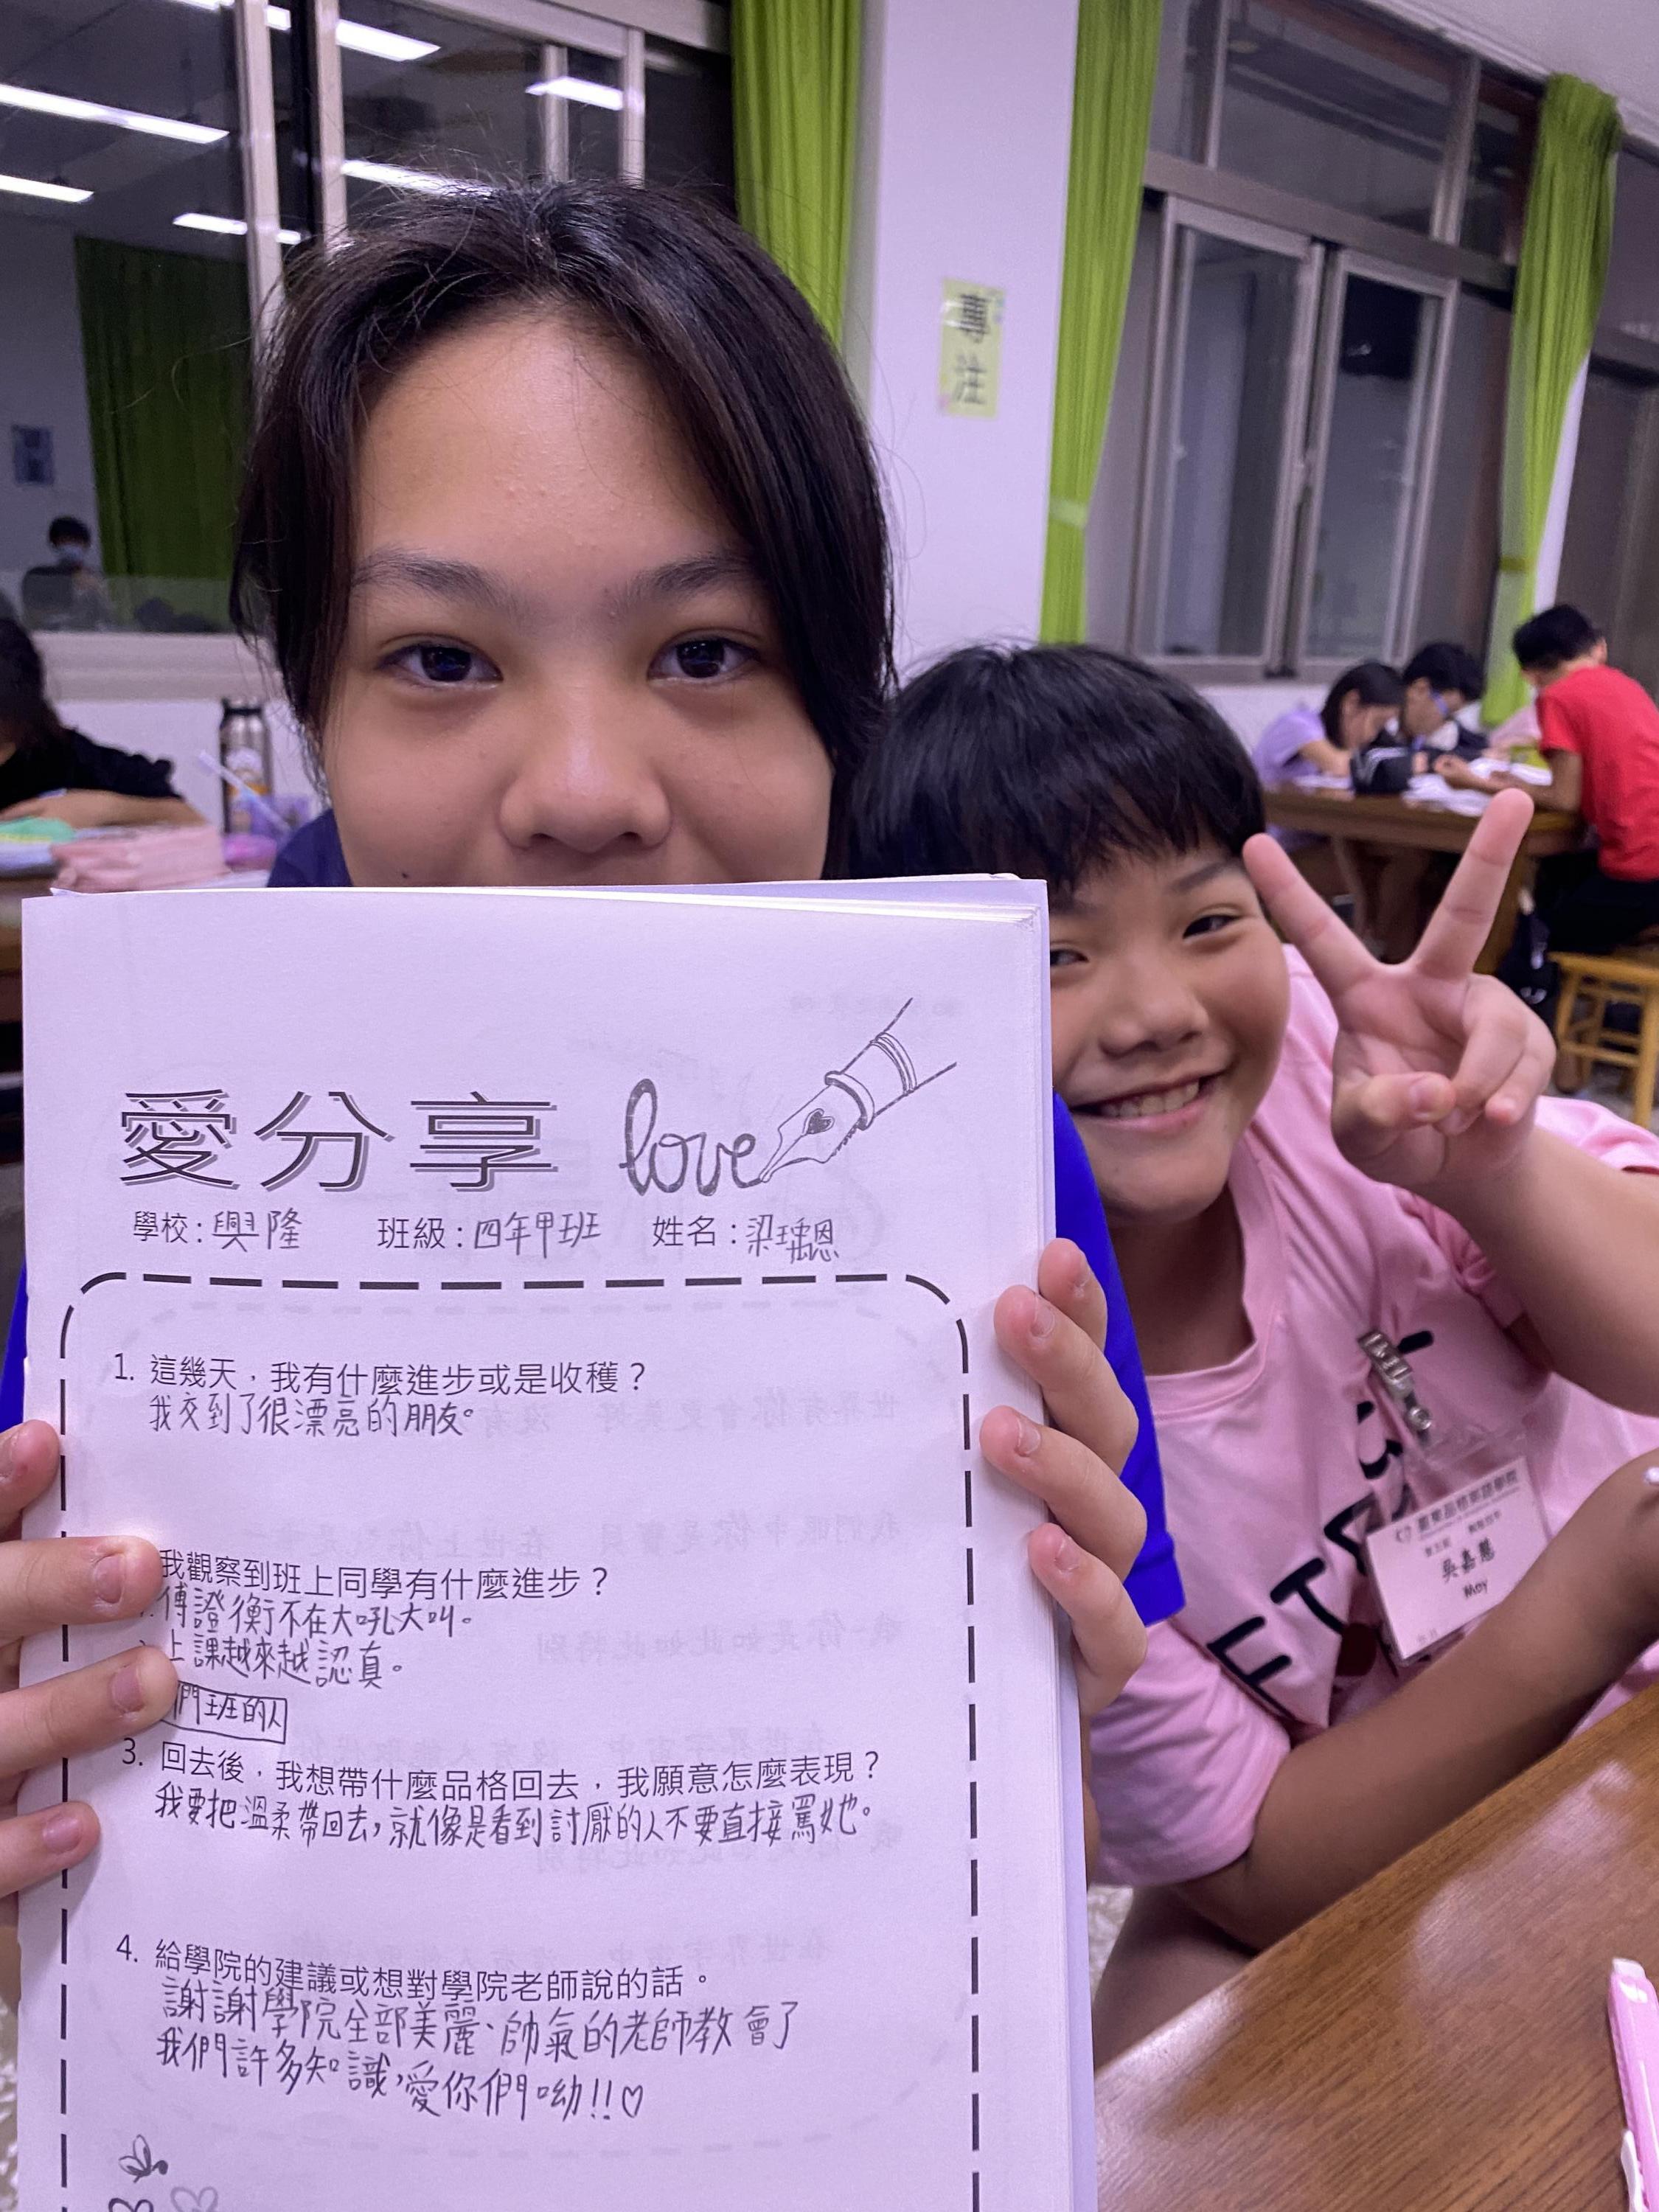 專注
愛分享 love
學校：興隆 班級：四年甲班 姓名：梁瑀恩
1. 這幾天，我有什麼進步或是收穫？
我交到了很漂亮的朋友。
我觀察到班上同學有什麼進步？
傅證衡不在大吼大叫。
上課越來越認真。
們班的人
3. 回去後，我想帶什麼品格回去，我願意怎麼表現？
我要把溫柔帶回去，就像是看到討厭的人不要直接罵她。
4. 給學院的建議或想對學院老師說的話。
謝謝學院全部美麗、帥氣的老師教會了
我們許多知識，愛你們呦!!♡
臺東品格英語學院
吳嘉慧
May